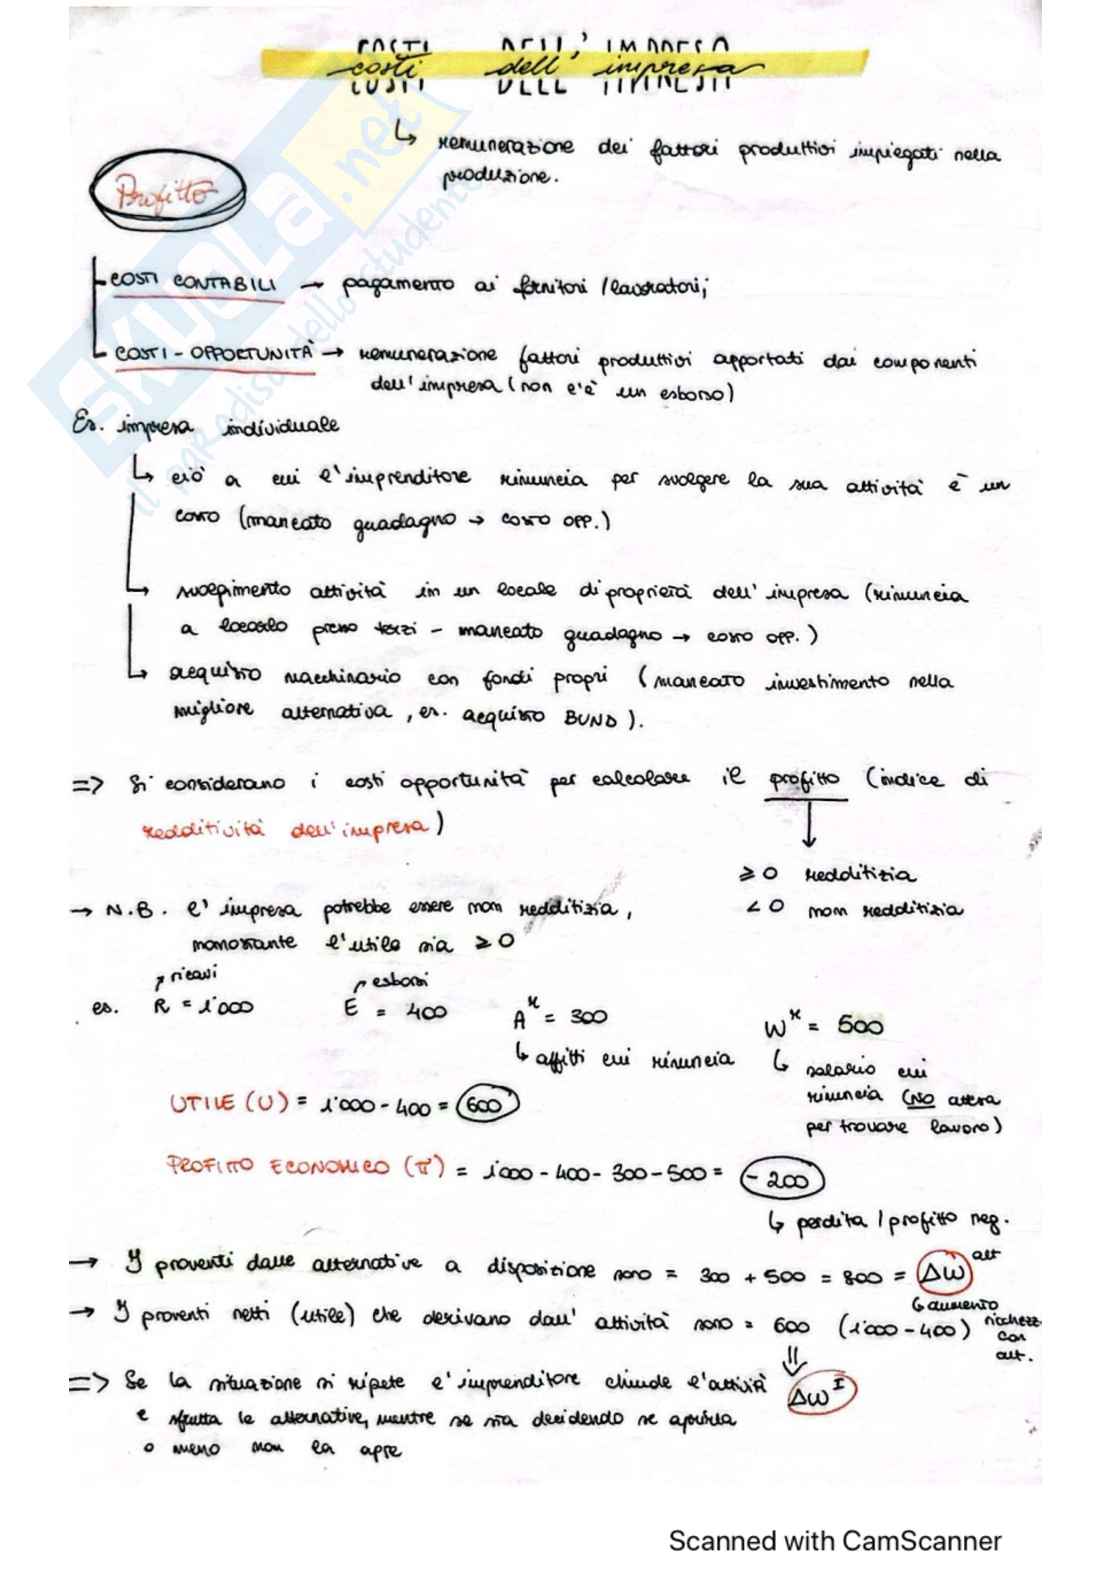 COSTI DELL'IMPRESA
costi dell'impresa
↳ remunerazione dei fattori produttivi impiegati nella
produzione.
Profitto
COSTI CONTABILI → pagamento ai fornitori / lavoratori;
COSTI-OPPORTUNITÀ → remunerazione fattori produttivi apportati dai componenti
dell'impresa (non c'è un esborso)
Es. impresa individuale
↳ ciò a cui l'imprenditore rinuncia per svolgere la sua attività è un
costo (mancato guadagno → costo opp.)
↳ svolgimento attività in un locale di proprietà dell'impresa (rinuncia
a locarlo presso terzi - mancato guadagno → costo opp.)
↳ acquisto macchinario con fondi propri (mancato investimento nella
migliore alternativa, es. acquisto BUND).
=> Si considerano i costi opportunità per calcolare il profitto (indice di
redditività dell'impresa)
≥ 0 redditizia
< 0 non redditizia
→ N.B. l'impresa potrebbe essere non redditizia,
nonostante l'utile sia ≥ 0
ricavi
esborsi
es. R = 1'000 E = 400 A^x = 300 W^x = 500
↳ affitti cui rinuncia
↳ salario cui
rinuncia (NO attesa
per trovare lavoro)
UTILE (U) = 1'000 - 400 = 600
PROFITTO ECONOMICO (π) = 1'000 - 400 - 300 - 500 = - 200
↳ perdita / profitto neg.
→ I proventi dalle alternative a disposizione sono = 300 + 500 = 800 = ΔW^alt
↳ aumento
ricchezz
con
alt.
→ I proventi netti (utile) che derivano dall'attività sono = 600 (1'000 - 400)
ΔW^I
=> Se la situazione si ripete l'imprenditore chiude l'attività
e sfrutta le alternative, mentre se sta decidendo se aprirla
o meno non la apre
SKUOLA.net
il paradiso dello studente
Scanned with CamScanner